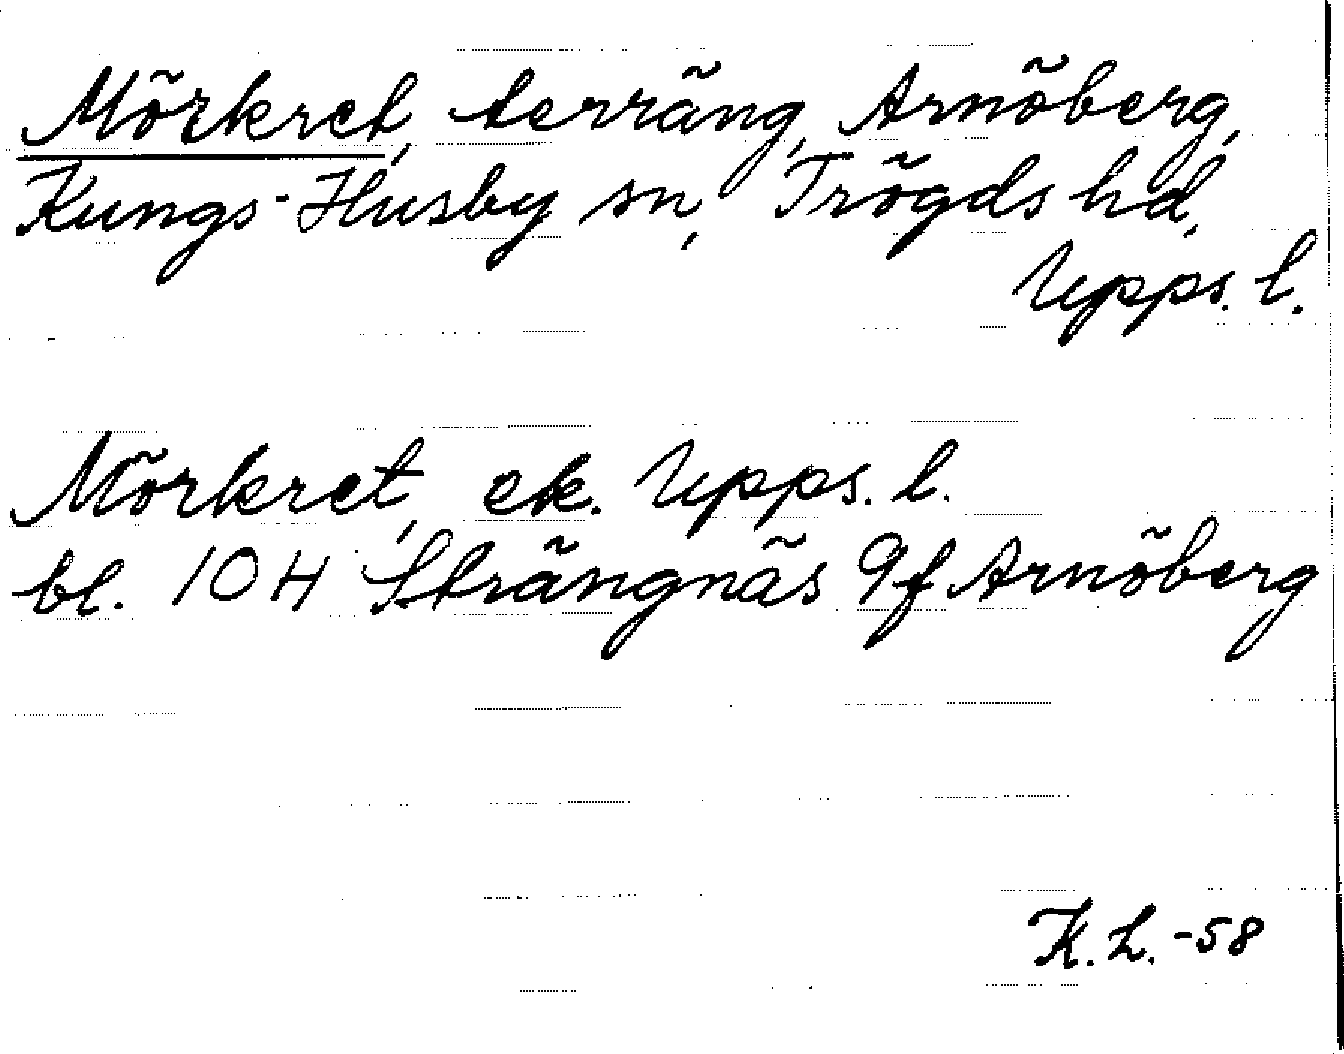 Mörkret, terräng, Arnöberg,
Kungs-Husby sn, Trögds hd,
Upps. l.
Mörkret, ek. Upps. l.
bl. 10 H Strängnäs 9f Arnöberg
K. L. -58